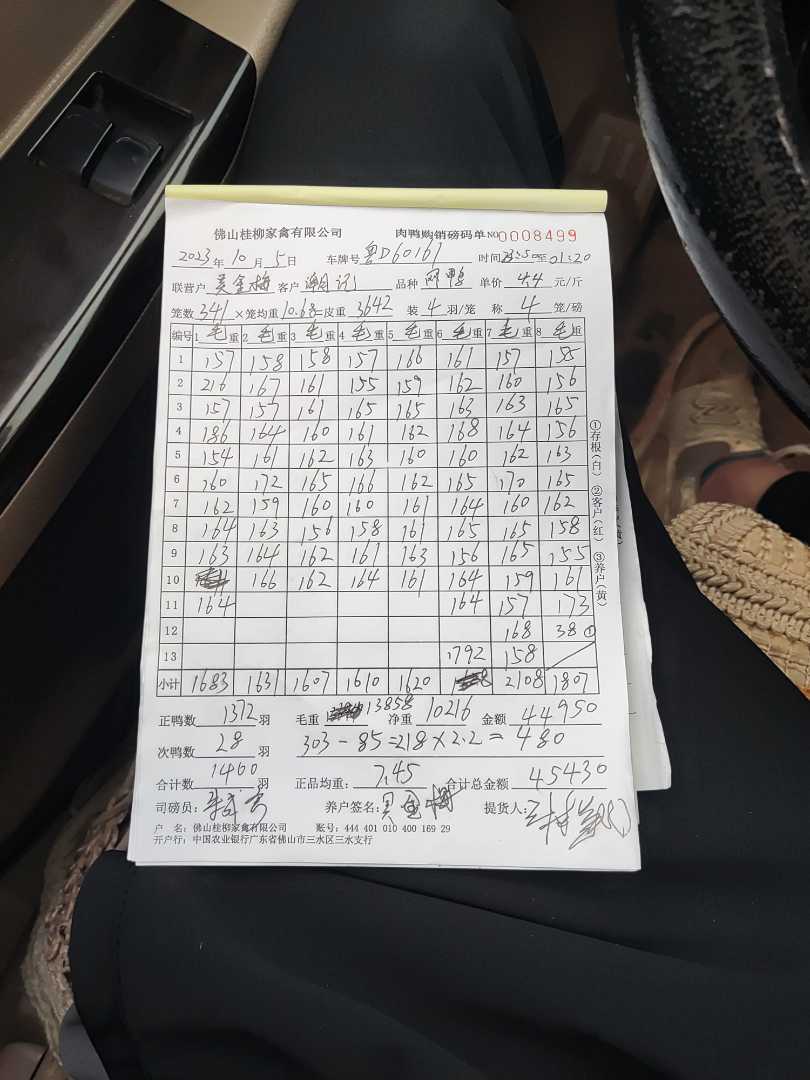 佛山桂柳家禽有限公司 肉鸭购销磅码单 NO 0008499
2023年10月5日 车牌号 粤D60161 时间 23:50至01:20
联营户 黄金梅 客户 潮记 品种 肉鸭 单价 4.4 元/斤
笼数 341 ×笼均重 10.68 =皮重 3642 装 4 羽/笼 称 4 笼/磅
编号 1 毛重 2 毛重 3 毛重 4 毛重 5 毛重 6 毛重 7 毛重 8 毛重
1 157 158 158 157 166 161 157 155
2 216 167 161 155 159 162 160 156
3 157 157 161 165 165 163 163 165
4 186 164 160 161 162 168 164 156
5 154 161 162 163 160 160 162 163
6 160 172 165 166 162 165 170 165
7 162 159 160 160 161 164 160 162
8 164 163 156 158 161 165 165 158
9 163 164 162 161 163 156 165 155
10 166 162 164 161 164 159 161
11 164 164 157 173
12 168 38 ①
13 1792 158
小计 1683 1631 1607 1610 1620 2108 1807
①存根(白) ②客户(红) ③养户(黄)
正鸭数 1372 羽 毛重 13858 净重 10216 金额 44950
次鸭数 28 羽 303-85=218×2.2=480
合计数 1400 羽 正品均重: 7.45 合计总金额 45430
司磅员: 养户签名: 提货人:
户 名: 佛山桂柳家禽有限公司 账号: 444 401 010 400 169 29
开户行: 中国农业银行广东省佛山市三水区三水支行